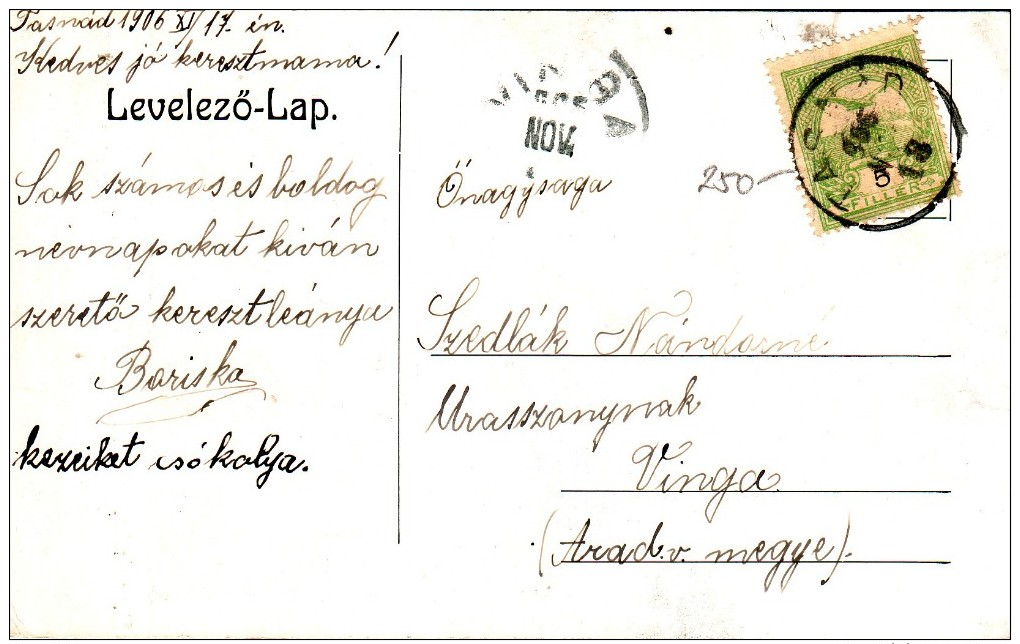 Tasnád 1906 XI/17. én.
Kedves jó keresztmama!
Levelező-Lap.
Sok számos és boldog
névnapokat kíván
szerető keresztleánya
Boriska
kezeiket csókolya.
Őnagysaga
250
5
FILLER
NOV
Szedlák Nándorné
Urasszonynak
Vinga
(Arad.v. megye).